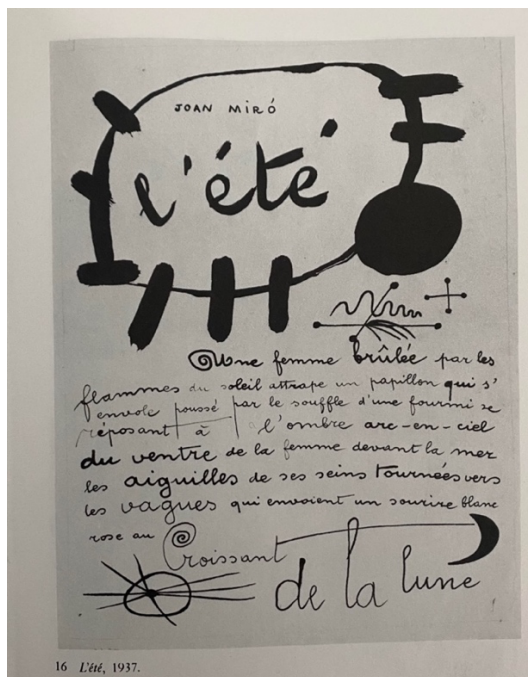 JOAN MIRÓ
l'été
Une femme brûlée par les
flammes du soleil attrape un papillon qui s'
envole poussé par le souffle d'une fourmi se
réposant à l'ombre arc-en-ciel
du ventre de la femme devant la mer
les aiguilles de ses seins tournées vers
les vagues qui envoient un sourire blanc
rose au
Croissant
de la lune
16 L'été, 1937.